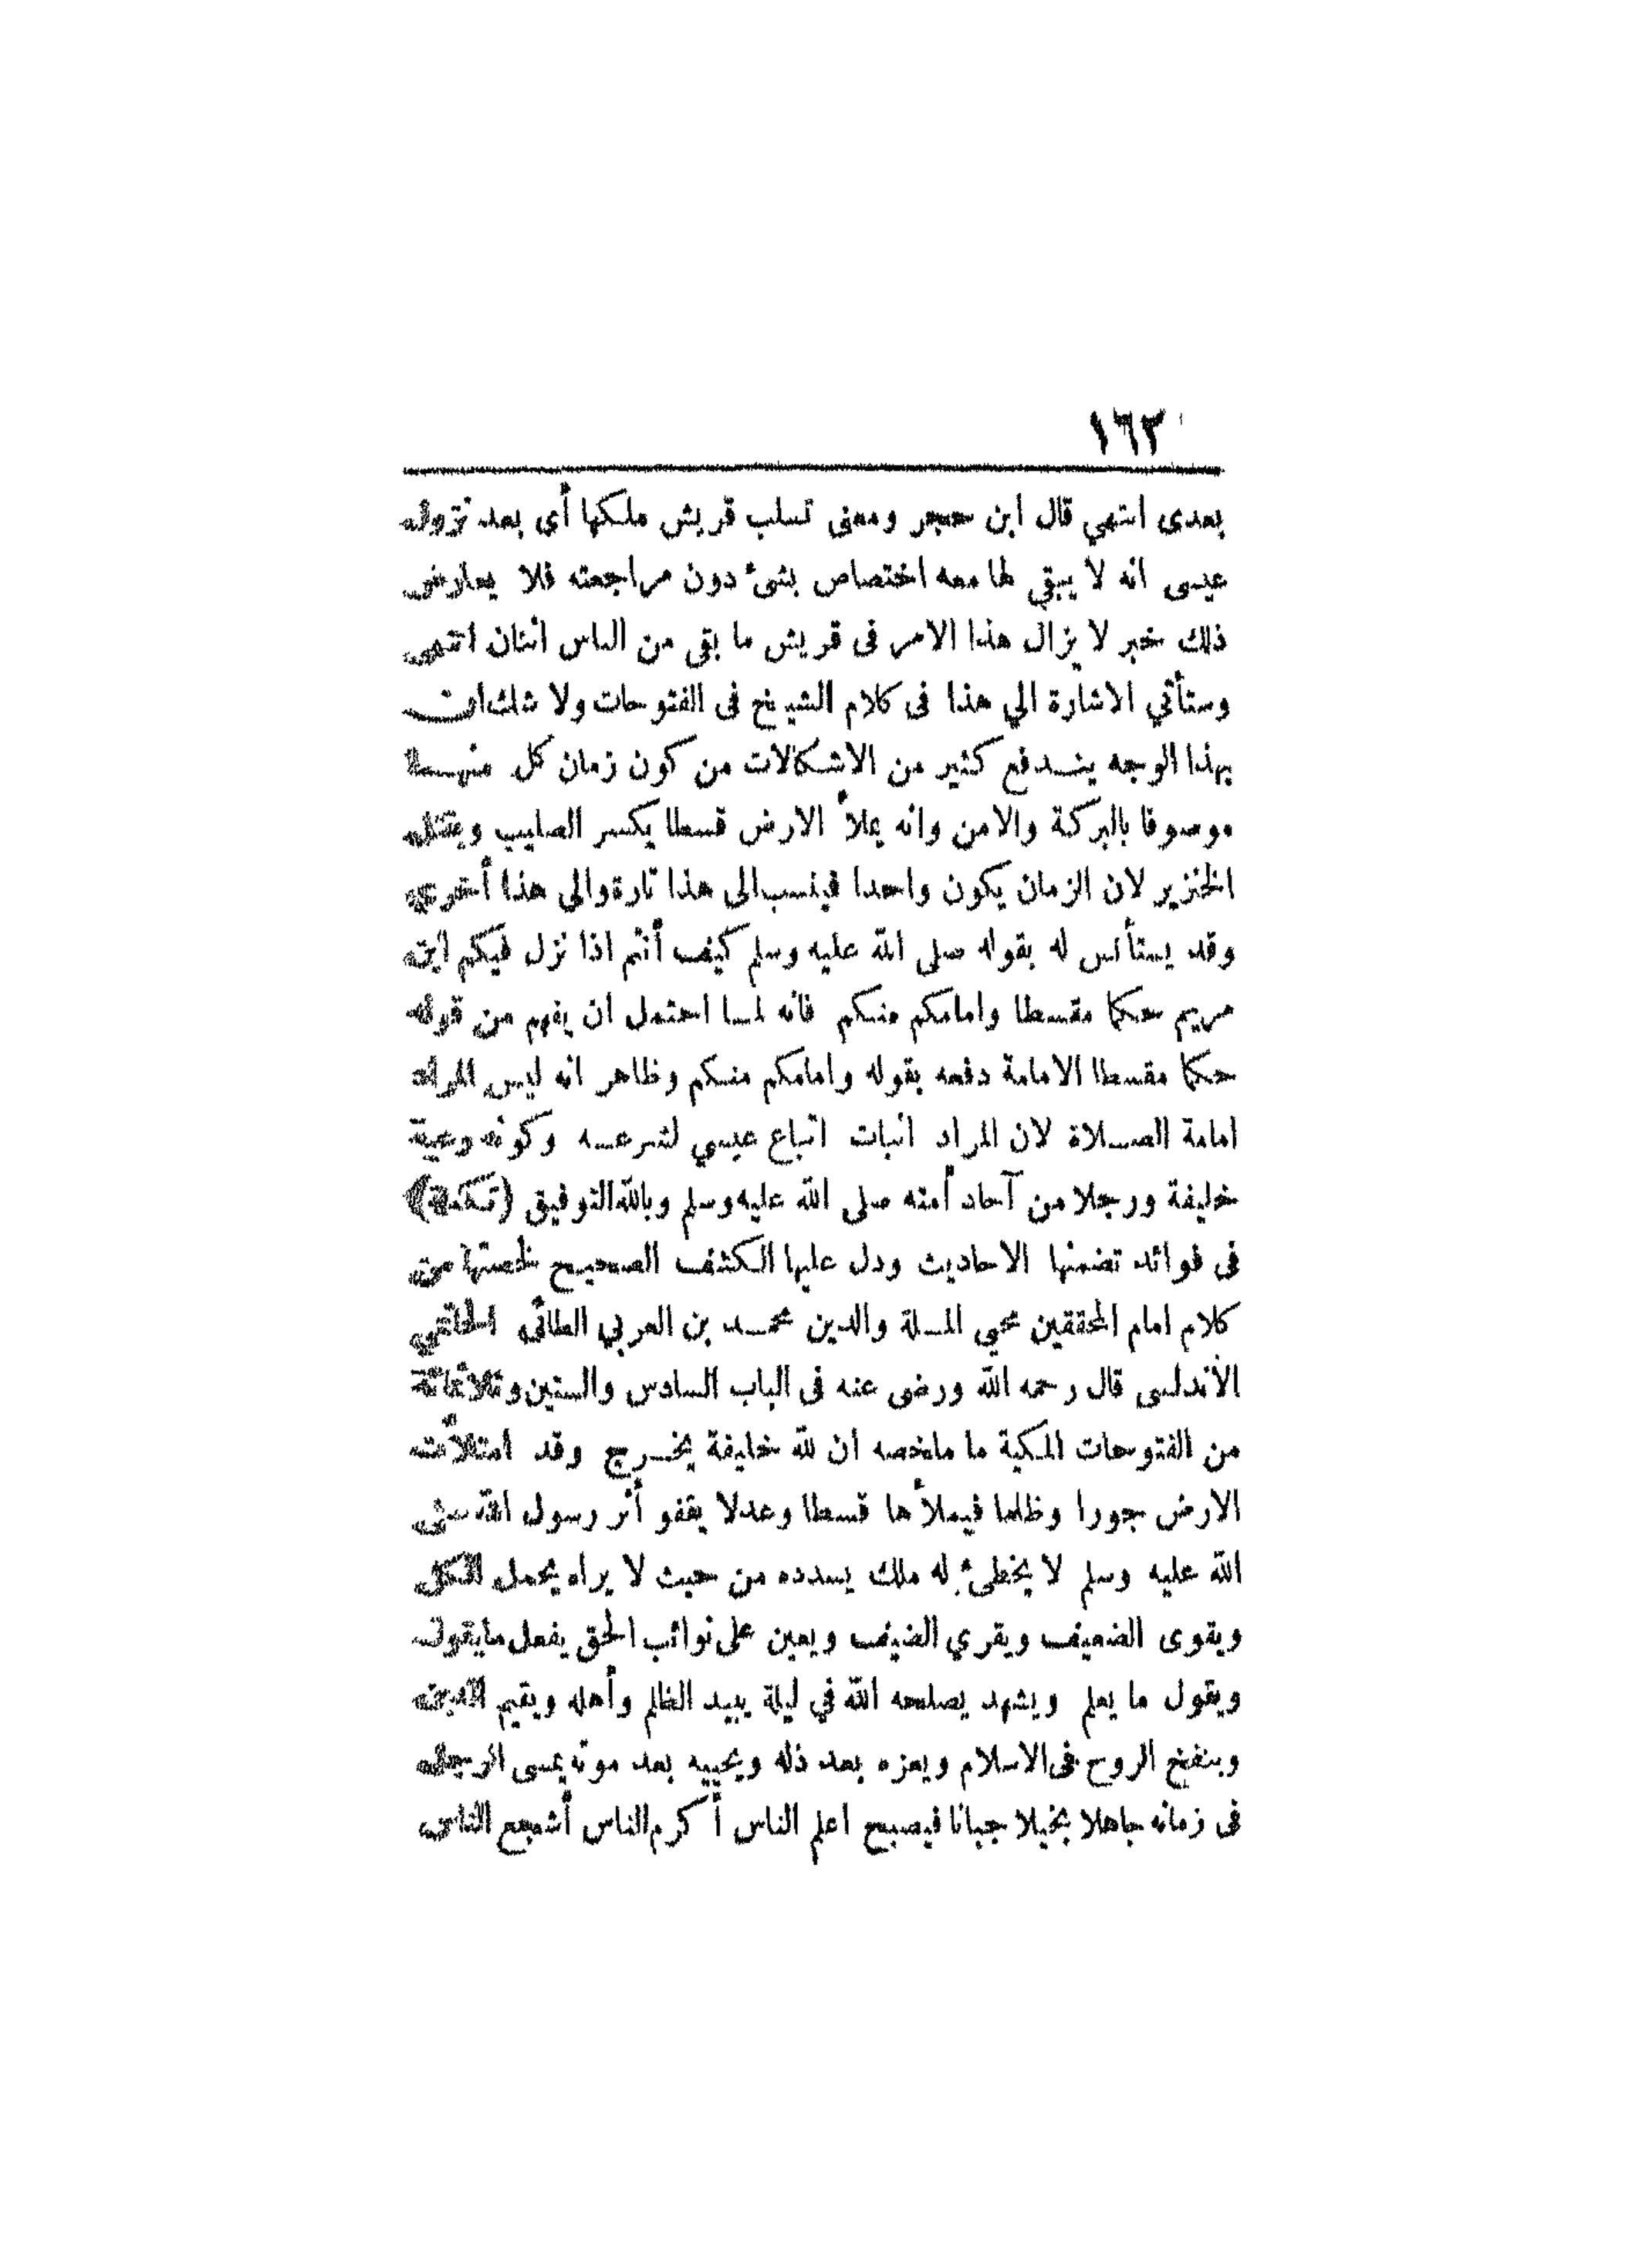 ١٦٢
بعدى انتهي قال ابن حجر ومعنى تسلب قريش ملكها أى بعد نزول
عيسى انه لا يبقي لها معه اختصاص بشئ دون مراجعته فلا يعارض
ذلك خبر لا يزال هذا الامر فى قريش ما بقى من الناس اثنان انتهى
وستأتي الاشارة الي هذا فى كلام الشيخ فى الفتوحات ولا شك ان
بهذا الوجه يندفع كثير من الاشكالات من كون زمان كل منهما
موصوفا بالبركة والامن وانه يملأ الارض قسطا يكسر الصليب ويقتل
الخنزير لان الزمان يكون واحدا فينسب الى هذا تارة والى هذا أخرى
وقد يستأنس له بقوله صلى الله عليه وسلم كيف أنتم اذا نزل فيكم ابن
مريم حكما مقسطا وامامكم منكم فانه لما احتمل ان يفهم من قوله
حكما مقسطا الامامة دفعه بقوله وامامكم منكم وظاهر انه ليس المراد
امامة الصلاة لان المراد اثبات اتباع عيسي لشرعه وكونه رعية
خليفة ورجلا من آحاد أمته صلى الله عليه وسلم وبالله التوفيق (تكملة)
فى فوائد تضمنها الاحاديث ودل عليها الكشف الصحيح لخصتها من
كلام امام المحققين محيى الملة والدين محمد بن العربي الطائى الحاتمي
الأندلسى قال رحمه الله ورضى عنه فى الباب السادس والستين وثلاثمائة
من الفتوحات المكية ما ملخصه ان لله خليفة يخرج وقد امتلأت
الارض جورا وظلما فيملأها قسطا وعدلا يقفو أثر رسول الله صلى
الله عليه وسلم لا يخطئ له ملك يسدده من حيث لا يراه يحمل الكل
ويقوى الضعيف ويقري الضيف ويعين على نوائب الحق يفعل ما يقول
ويقول ما يعلم ويشهد يصلحه الله في ليلة يبيد الظلم وأهله ويقيم الدين
وينفخ الروح فى الاسلام ويعزه بعد ذله ويحييه بعد موته يمسى الرجل
فى زمانه جاهلا بخيلا جبانا فيصبح اعلم الناس أكرم الناس أشجع الناس